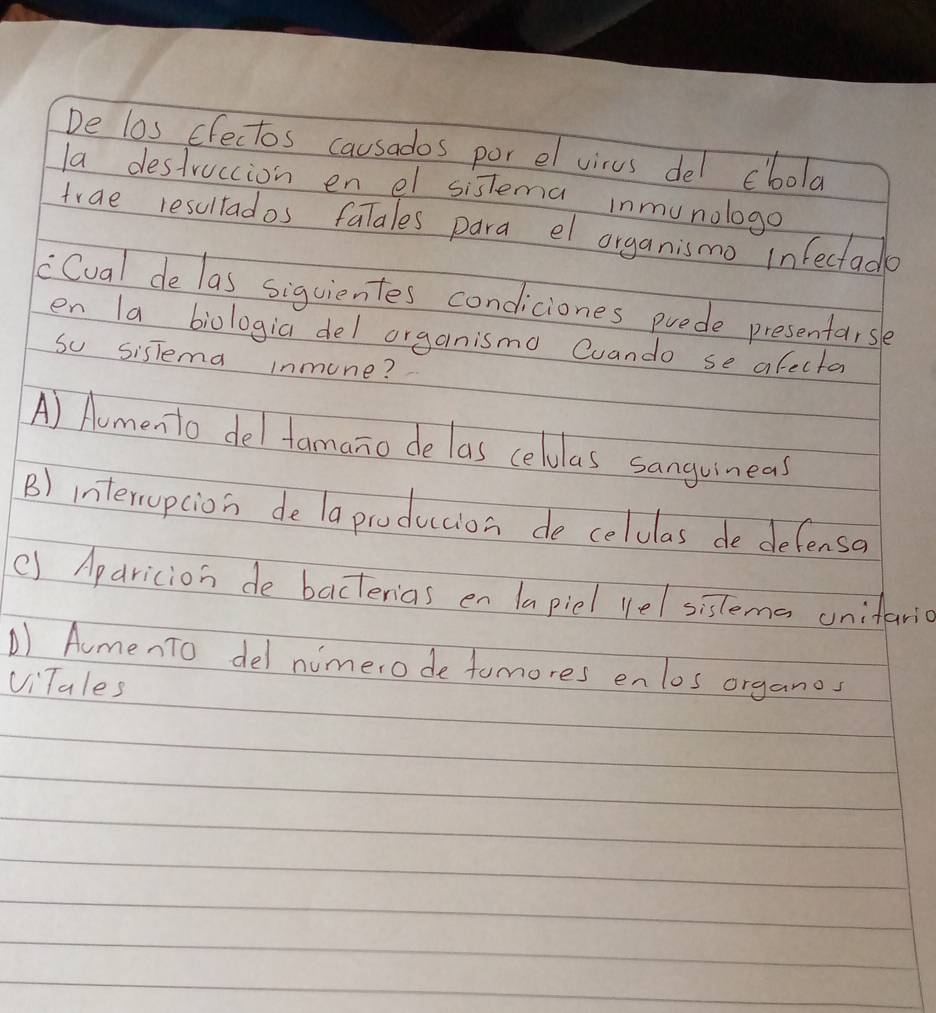 De los efectos causados por el virus del ebola
la destruccion en el sistema inmunologo
trae resultados fatales para el organismo infectado
¿Cual de las siguientes condiciones puede presentarse
en la biologia del organismo Cuando se afecta
su sistema inmune?
A) Aumento del tamaño de las celulas sanguineas
B) interrupcion de la produccion de celulas de defensa
C) Aparicion de bacterias en la piel y el sistema unitario
D) Aumento del número de tumores en los organos
vitales